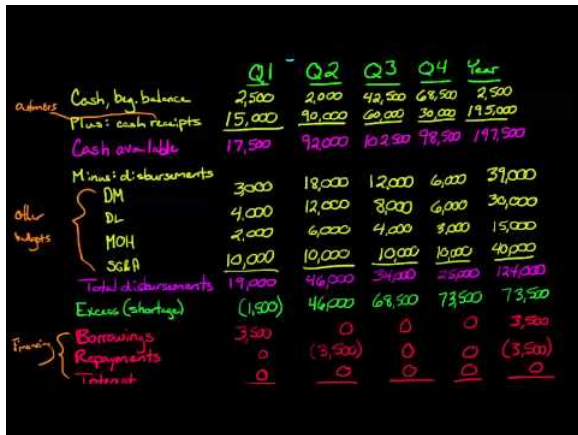 Q1 Q2 Q3 Q4 Year
Cash, beg. balance 2,500 2,000 42,500 68,500 2,500
customers Plus: cash receipts 15,000 90,000 60,000 30,000 195,000
Cash available 17,500 92,000 102,500 98,500 197,500
Minus: disbursements
DM 3,000 18,000 12,000 6,000 39,000
DL 4,000 12,000 8,000 6,000 30,000
other budgets MOH 2,000 6,000 4,000 3,000 15,000
SG&A 10,000 10,000 10,000 10,000 40,000
Total disbursements 19,000 46,000 34,000 25,000 124,000
Excess (shortage) (1,500) 46,000 68,500 73,500 73,500
Financing Borrowings 3,500 0 0 0 3,500
Repayments 0 (3,500) 0 0 (3,500)
Interest 0 0 0 0 0